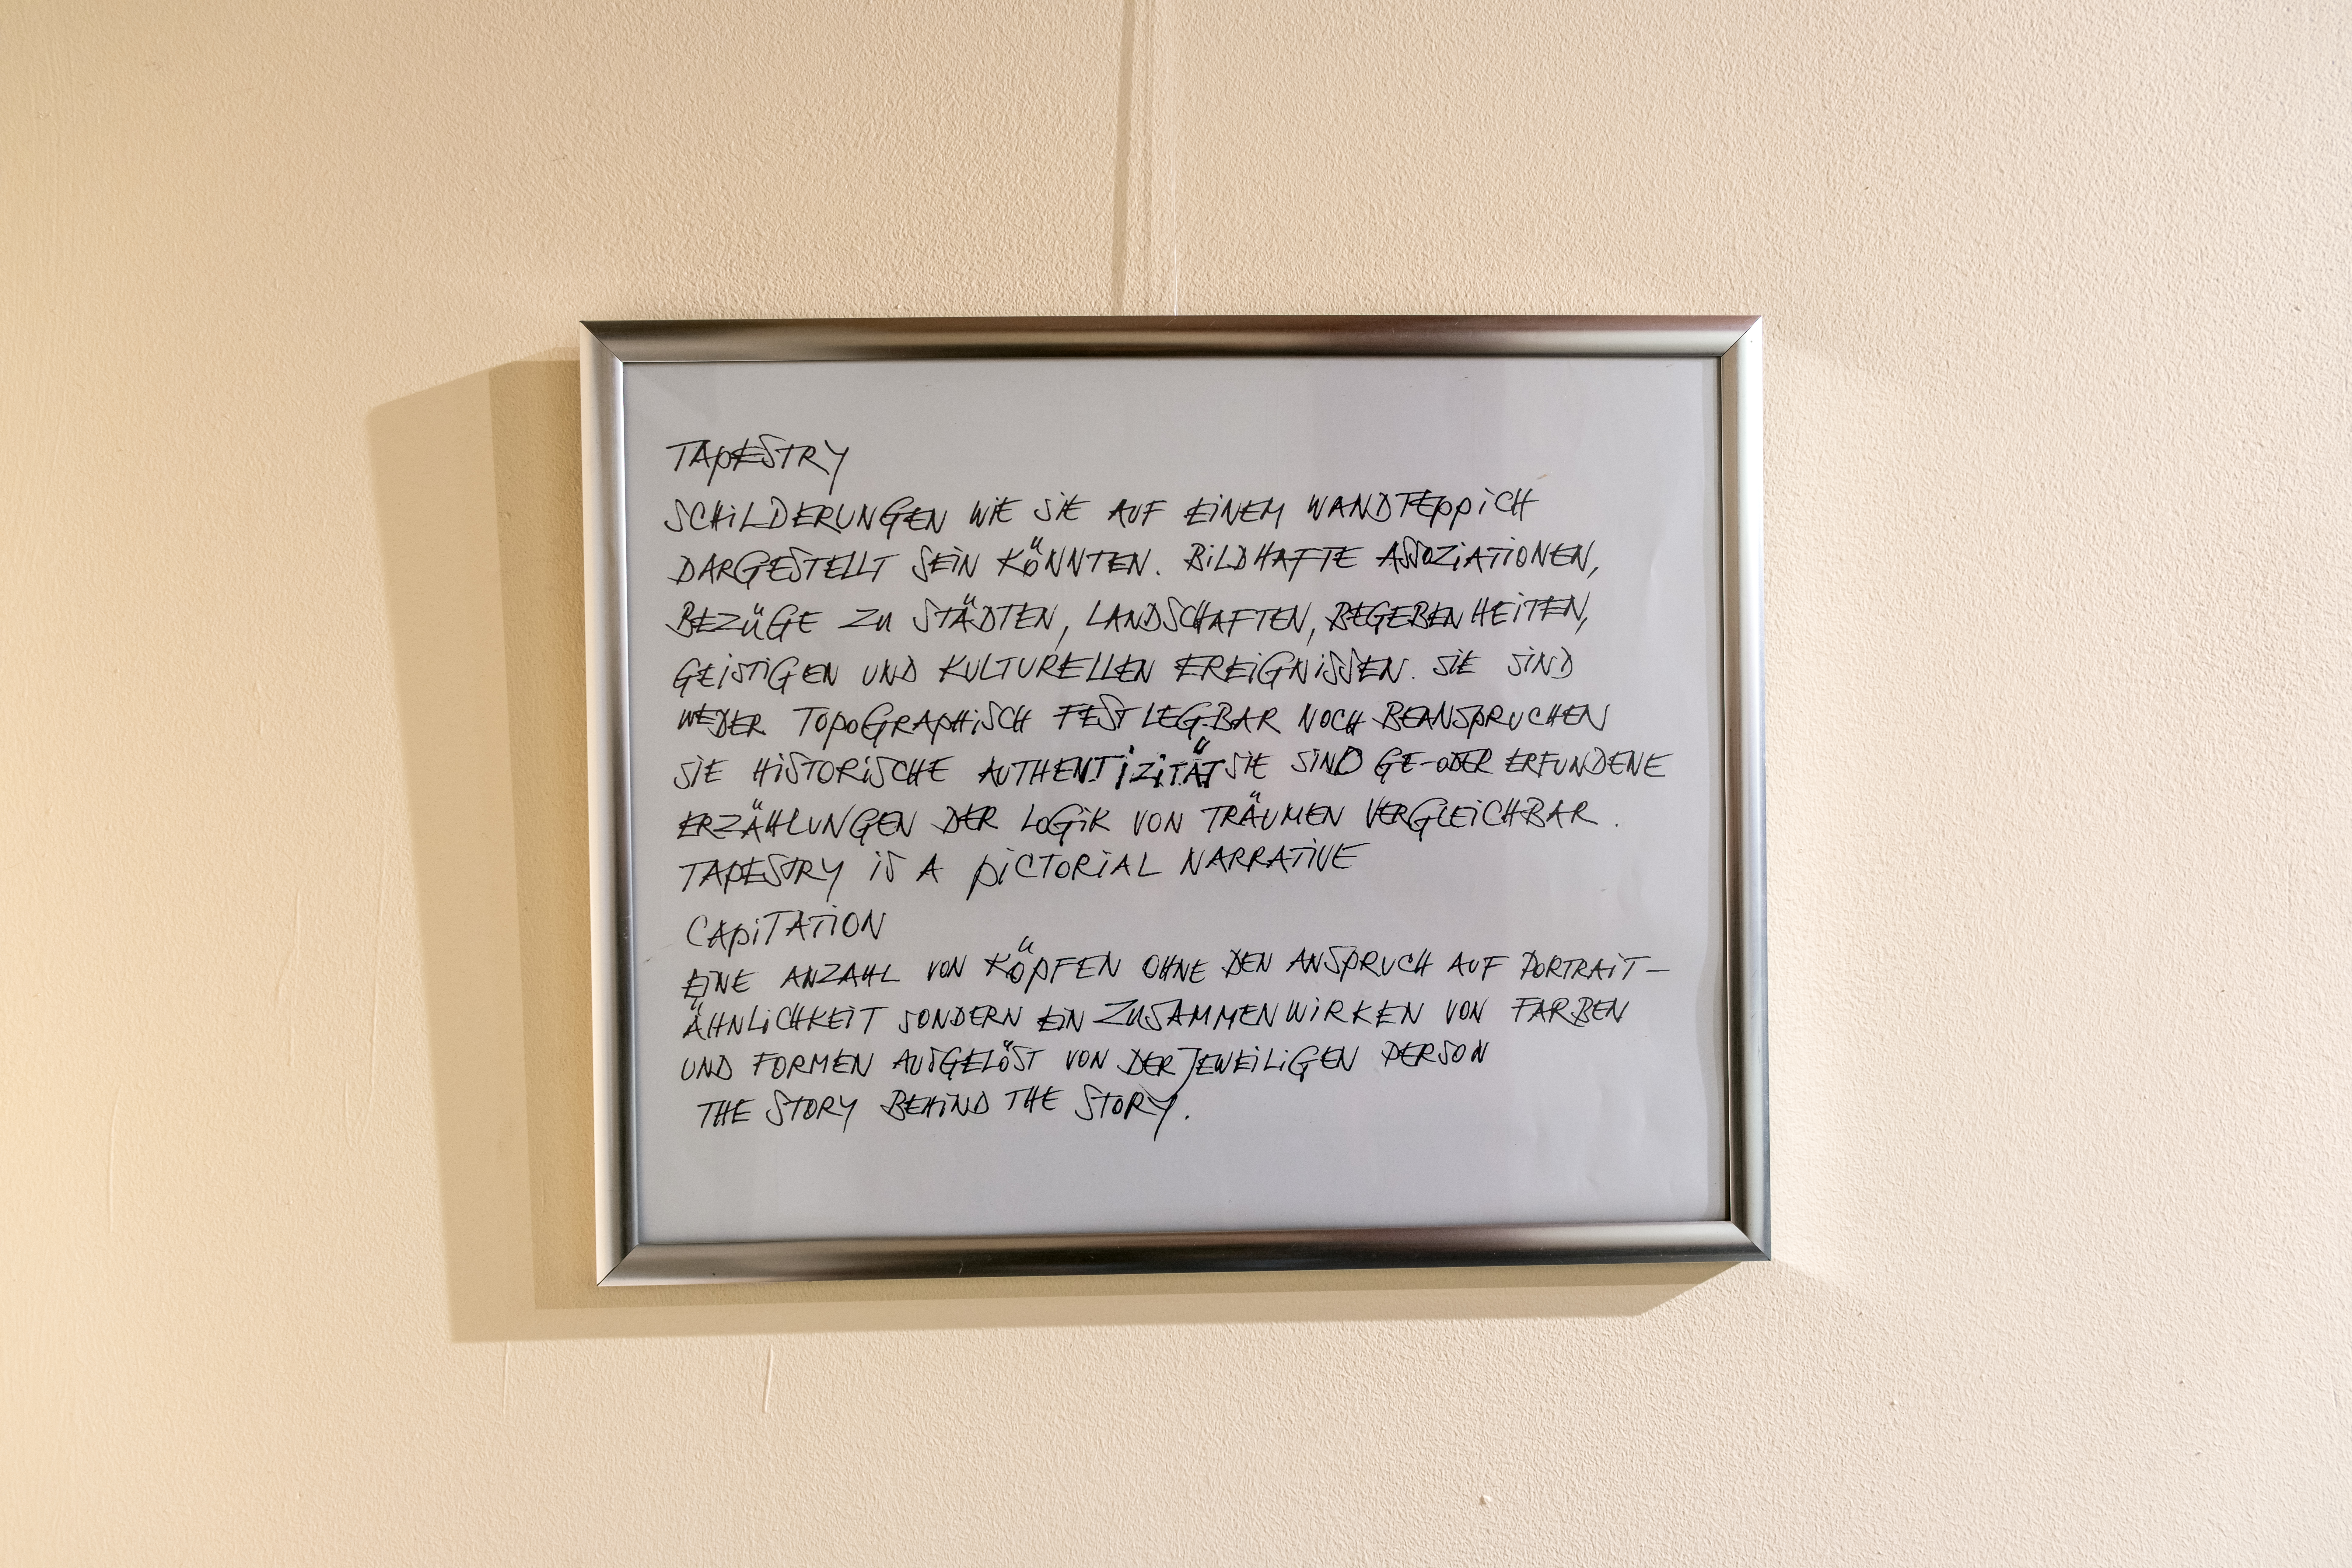 TAPESTRY
SCHILDERUNGEN WIE SIE AUF EINEM WANDTEPPICH
DARGESTELLT SEIN KÖNNTEN. BILDHAFTE ASSOZIATIONEN,
BEZÜGE ZU STÄDTEN, LANDSCHAFTEN, BEGEBENHEITEN,
GEISTIGEN UND KULTURELLEN EREIGNISSEN. SIE SIND
WEDER TOPOGRAPHISCH FESTLEGBAR NOCH BEANSPRUCHEN
SIE HISTORISCHE AUTHENTIZITÄT SIE SIND GE-ODER ERFUNDENE
ERZÄHLUNGEN DER LOGIK VON TRÄUMEN VERGLEICHBAR.
TAPESTRY IS A PICTORIAL NARRATIVE
CAPITATION
EINE ANZAHL VON KÖPFEN OHNE DEN ANSPRUCH AUF PORTRAIT-
ÄHNLICHKEIT SONDERN EIN ZUSAMMENWIRKEN VON FARBEN
UND FORMEN AUSGELÖST VON DER JEWEILIGEN PERSON
THE STORY BEHIND THE STORY.